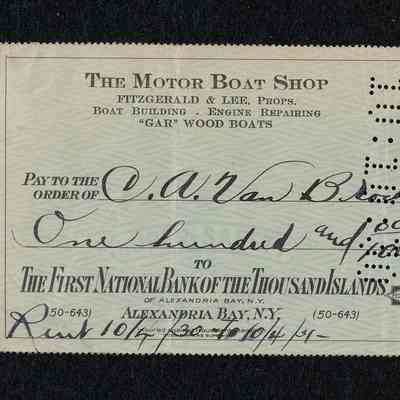 THE MOTOR BOAT SHOP
FITZGERALD & LEE, PROPS.
BOAT BUILDING - ENGINE REPAIRING
"GAR" WOOD BOATS
PAY TO THE
ORDER OF C. A. Van B
One hundred and 00
TO
THE FIRST NATIONAL BANK OF THE THOUSAND ISLANDS
OF ALEXANDRIA BAY, N.Y.
(50-643) ALEXANDRIA BAY, N.Y. (50-643)
Rent 10/4/30 to 10/4/31-